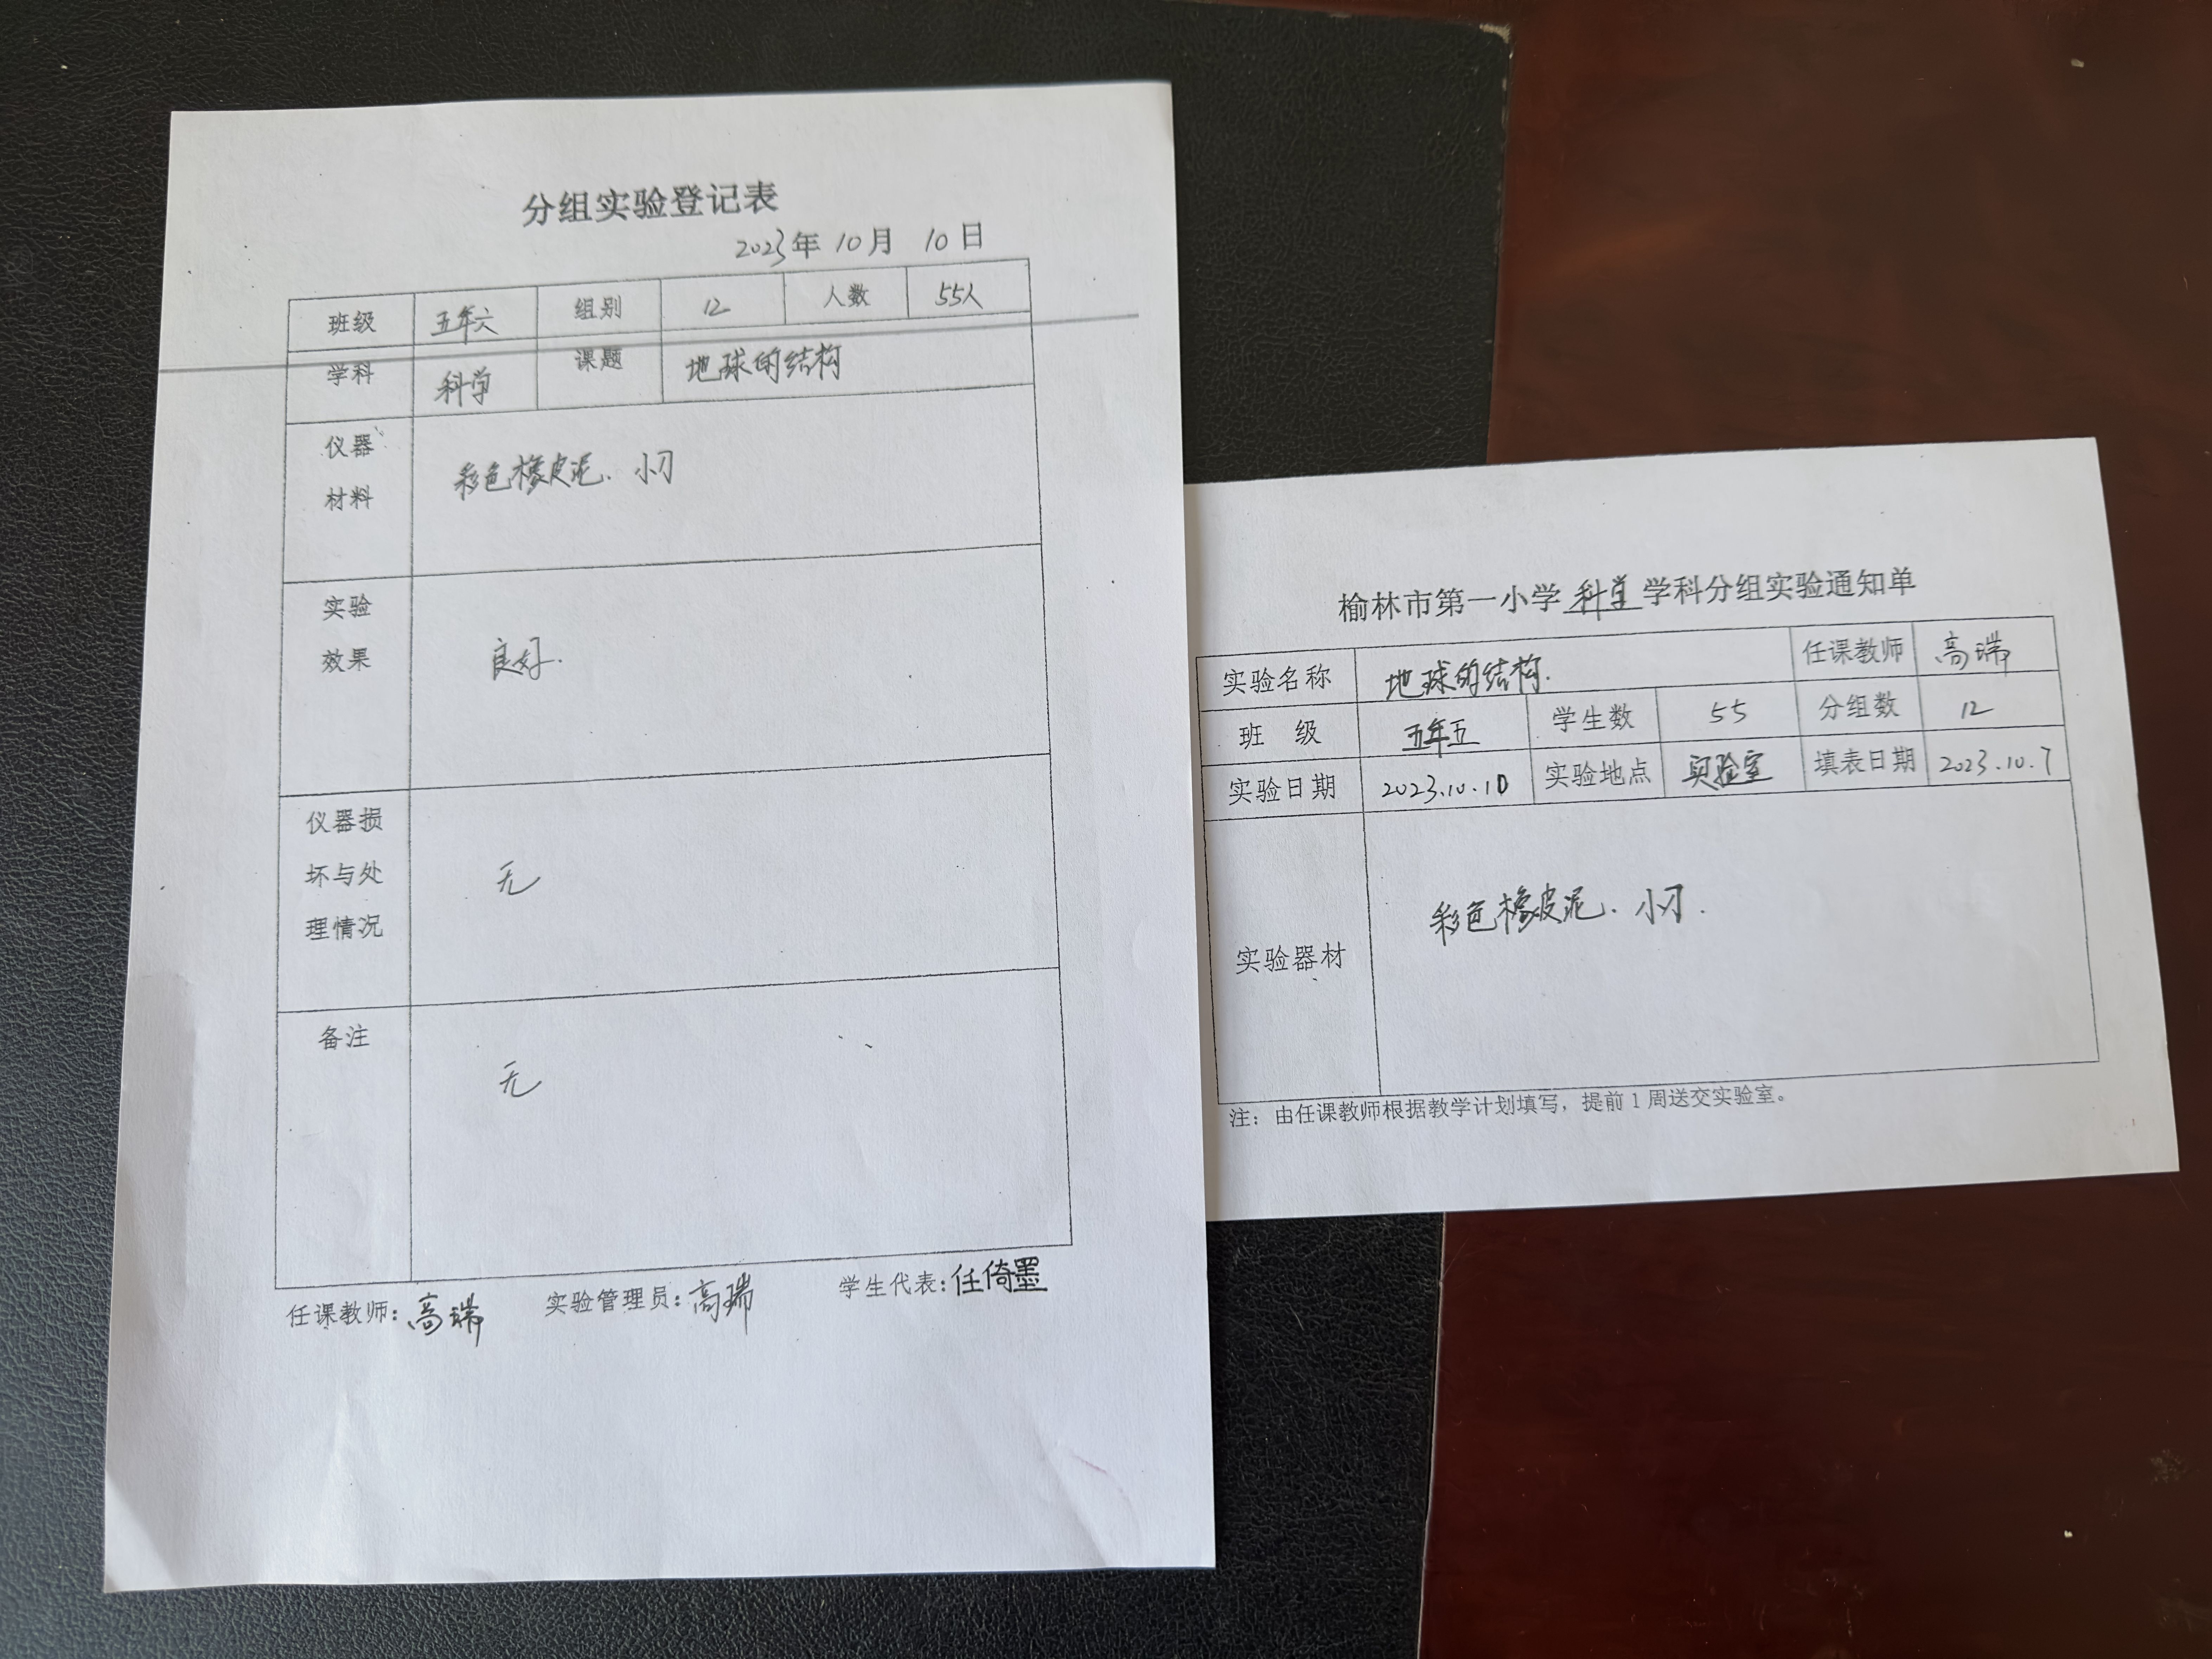 分组实验登记表
2023年 10月 10日
班级 五年六 组别 12 人数 55人
学科 科学 课题 地球的结构
仪器 材料 彩色橡皮泥、小刀
实验 效果 良好.
仪器损 坏与处 理情况 无
备注 无
任课教师：高瑞 实验管理员：高瑞 学生代表：任倚墨
榆林市第一小学科学学科分组实验通知单
实验名称 地球的结构. 任课教师 高瑞
班 级 五年五 学生数 55 分组数 12
实验日期 2023.10.10 实验地点 实验室 填表日期 2023.10.7
实验器材 彩色橡皮泥、小刀.
注：由任课教师根据教学计划填写，提前1周送交实验室。